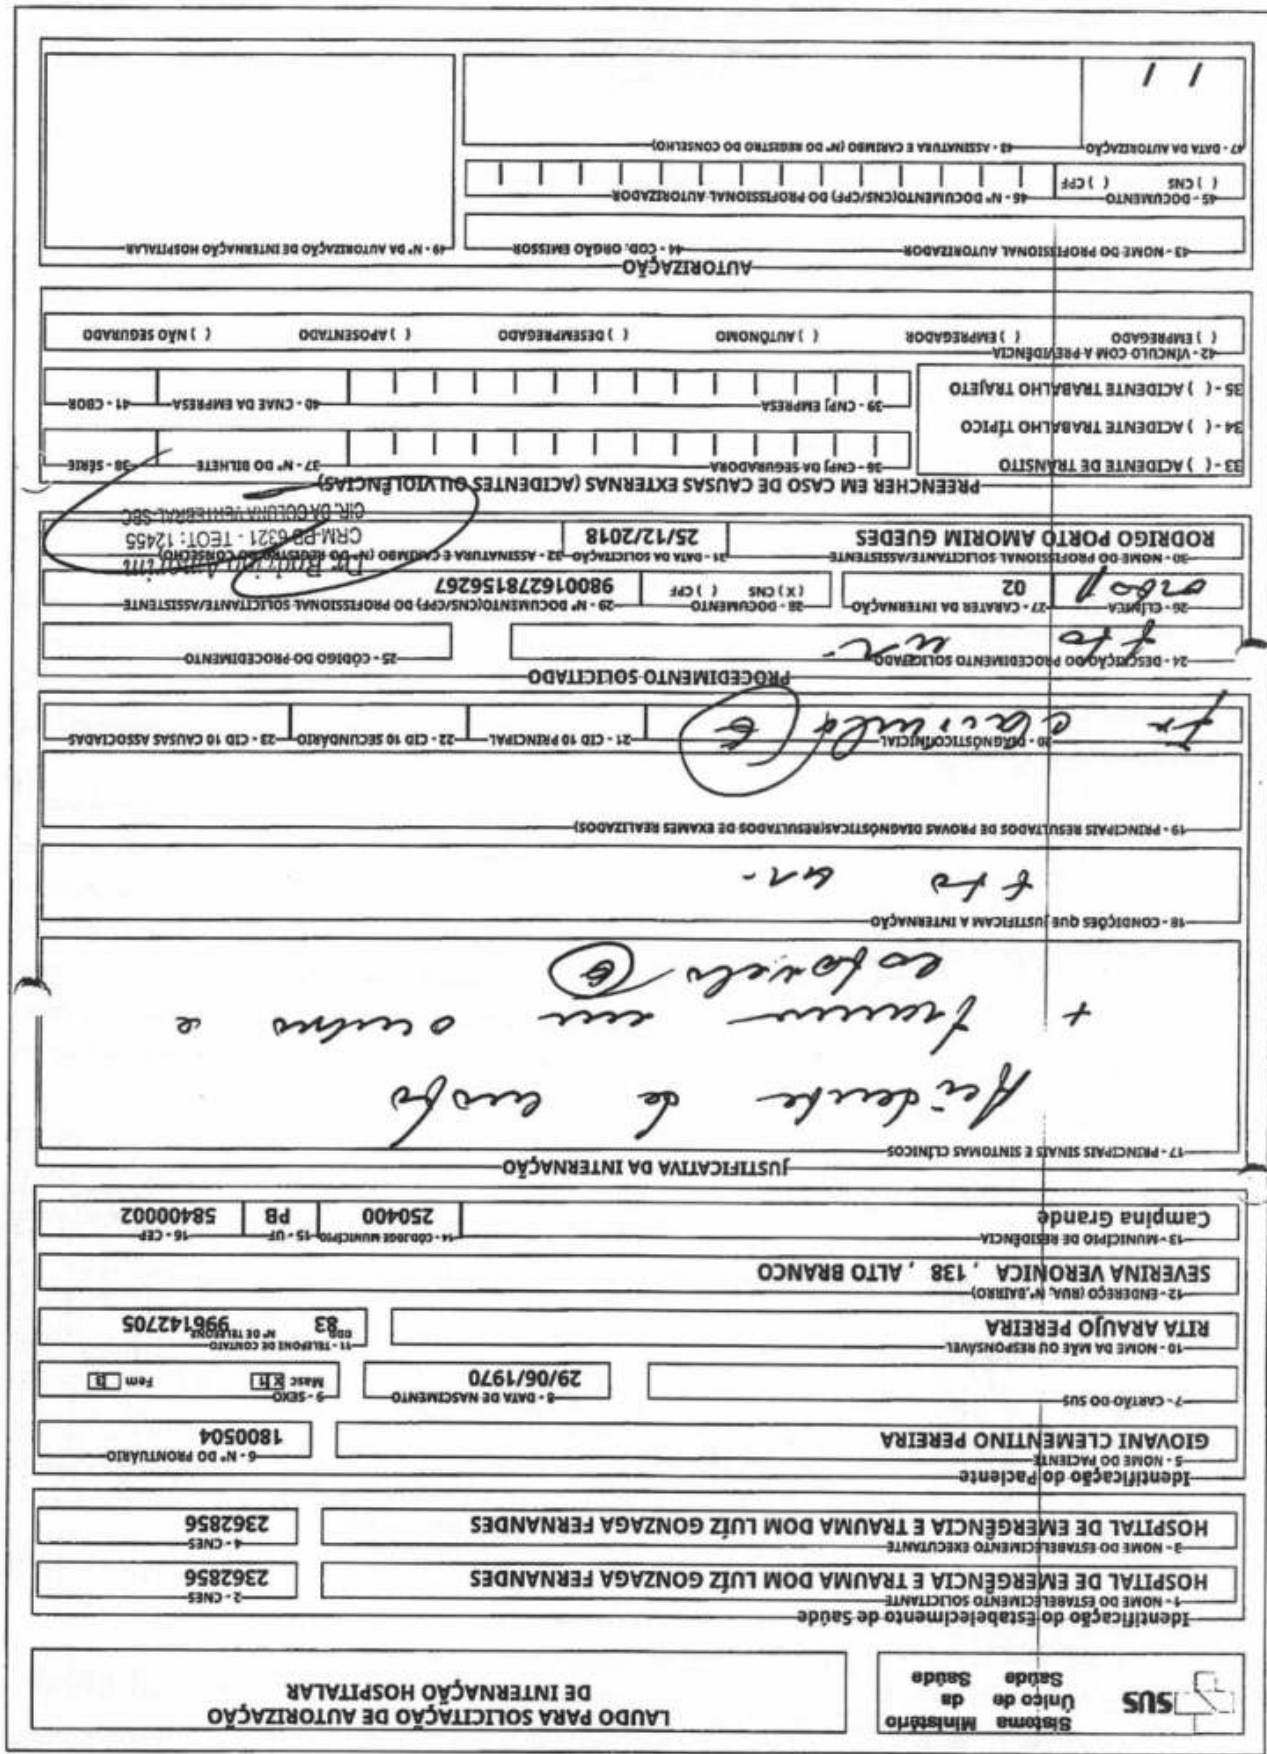 SUS
Sistema Único de Saúde
Ministério da Saúde
LAUDO PARA SOLICITAÇÃO DE AUTORIZAÇÃO
DE INTERNAÇÃO HOSPITALAR
Identificação do Estabelecimento de Saúde
1 - NOME DO ESTABELECIMENTO SOLICITANTE
HOSPITAL DE EMERGÊNCIA E TRAUMA DOM LUÍZ GONZAGA FERNANDES
2 - CNES
2362856
3 - NOME DO ESTABELECIMENTO EXECUTANTE
HOSPITAL DE EMERGÊNCIA E TRAUMA DOM LUÍZ GONZAGA FERNANDES
4 - CNES
2362856
Identificação do Paciente
5 - NOME DO PACIENTE
GIOVANI CLEMENTINO PEREIRA
6 - Nº DO PRONTUÁRIO
1800504
7 - CARTÃO DO SUS
8 - DATA DE NASCIMENTO
29/06/1970
9 - SEXO
Masc [X] 1 Fem 3
10 - NOME DA MÃE OU RESPONSÁVEL
RITA ARAUJO PEREIRA
11 - TELEFONE DE CONTATO
DDD Nº DE TELEFONE
83 996142705
12 - ENDEREÇO (RUA, Nº,BAIRRO)
SEVERINA VERONICA , 138 , ALTO BRANCO
13 - MUNICÍPIO DE RESIDÊNCIA
Campina Grande
14 - CÓDJGE MUNICÍPIO
250400
15 - UF
PB
16 - CEP
58400002
JUSTIFICATIVA DA INTERNAÇÃO
17 - PRINCIPAIS SINAIS E SINTOMAS CLÍNICOS
Acidente de moto
+ trauma em ombro e
18 - CONDIÇÕES QUE JUSTIFICAM A INTERNAÇÃO
tto
19 - PRINCIPAIS RESULTADOS DE PROVAS DIAGNÓSTICAS(RESULTADOS DE EXAMES REALIZADOS)
20 - DIAGNÓSTICO INICIAL
Fx clavicula E
21 - CID 10 PRINCIPAL
22 - CID 10 SECUNDÁRIO
23 - CID 10 CAUSAS ASSOCIADAS
PROCEDIMENTO SOLICITADO
24 - DESCRIÇÃO DO PROCEDIMENTO SOLICITADO
tto
25 - CÓDIGO DO PROCEDIMENTO
26 - CLÍNICA
27 - CARATER DA INTERNAÇÃO
02
28 - DOCUMENTO
( X ) CNS ( ) CPF
29 - Nº DOCUMENTO(CNS/CPF) DO PROFISSIONAL SOLICITANTE/ASSISTENTE
980016278156267
30 - NOME DO PROFISSIONAL SOLICITANTE/ASSISTENTE
RODRIGO PORTO AMORIM GUEDES
31 - DATA DA SOLICITAÇÃO
25/12/2018
32 - ASSINATURA E CARIMBO (Nº DO REGISTRO DO CONSELHO)
Dr. Rodrigo Amorim
CRM-PB 6321 - TEOT: 12455
CIR. DA COLUNA VERTEBRAL-SBC
PREENCHER EM CASO DE CAUSAS EXTERNAS (ACIDENTES OU VIOLÊNCIAS)
33 - ( ) ACIDENTE DE TRÂNSITO
34 - ( ) ACIDENTE TRABALHO TÍPICO
35 - ( ) ACIDENTE TRABALHO TRAJETO
36 - CNPJ DA SEGURADORA
37 - Nº DO BILHETE
38 - SÉRIE
39 - CNPJ EMPRESA
40 - CNAE DA EMPRESA
41 - CBOR
42 - VÍNCULO COM A PREVIDÊNCIA
( ) EMPREGADO ( ) EMPREGADOR ( ) AUTÔNOMO ( ) DESEMPREGADO ( ) APOSENTADO ( ) NÃO SEGURADO
AUTORIZAÇÃO
43 - NOME DO PROFISSIONAL AUTORIZADOR
44 - COD. ORGÃO EMISSOR
49 - Nº DA AUTORIZAÇÃO DE INTERNAÇÃO HOSPITALAR
45 - DOCUMENTO
( ) CNS ( ) CPF
46 - Nº DOCUMENTO(CNS/CPF) DO PROFISSIONAL AUTORIZADOR
47 - DATA DA AUTORIZAÇÃO
/ /
48 - ASSINATURA E CARIMBO (Nº DO REGISTRO DO CONSELHO)